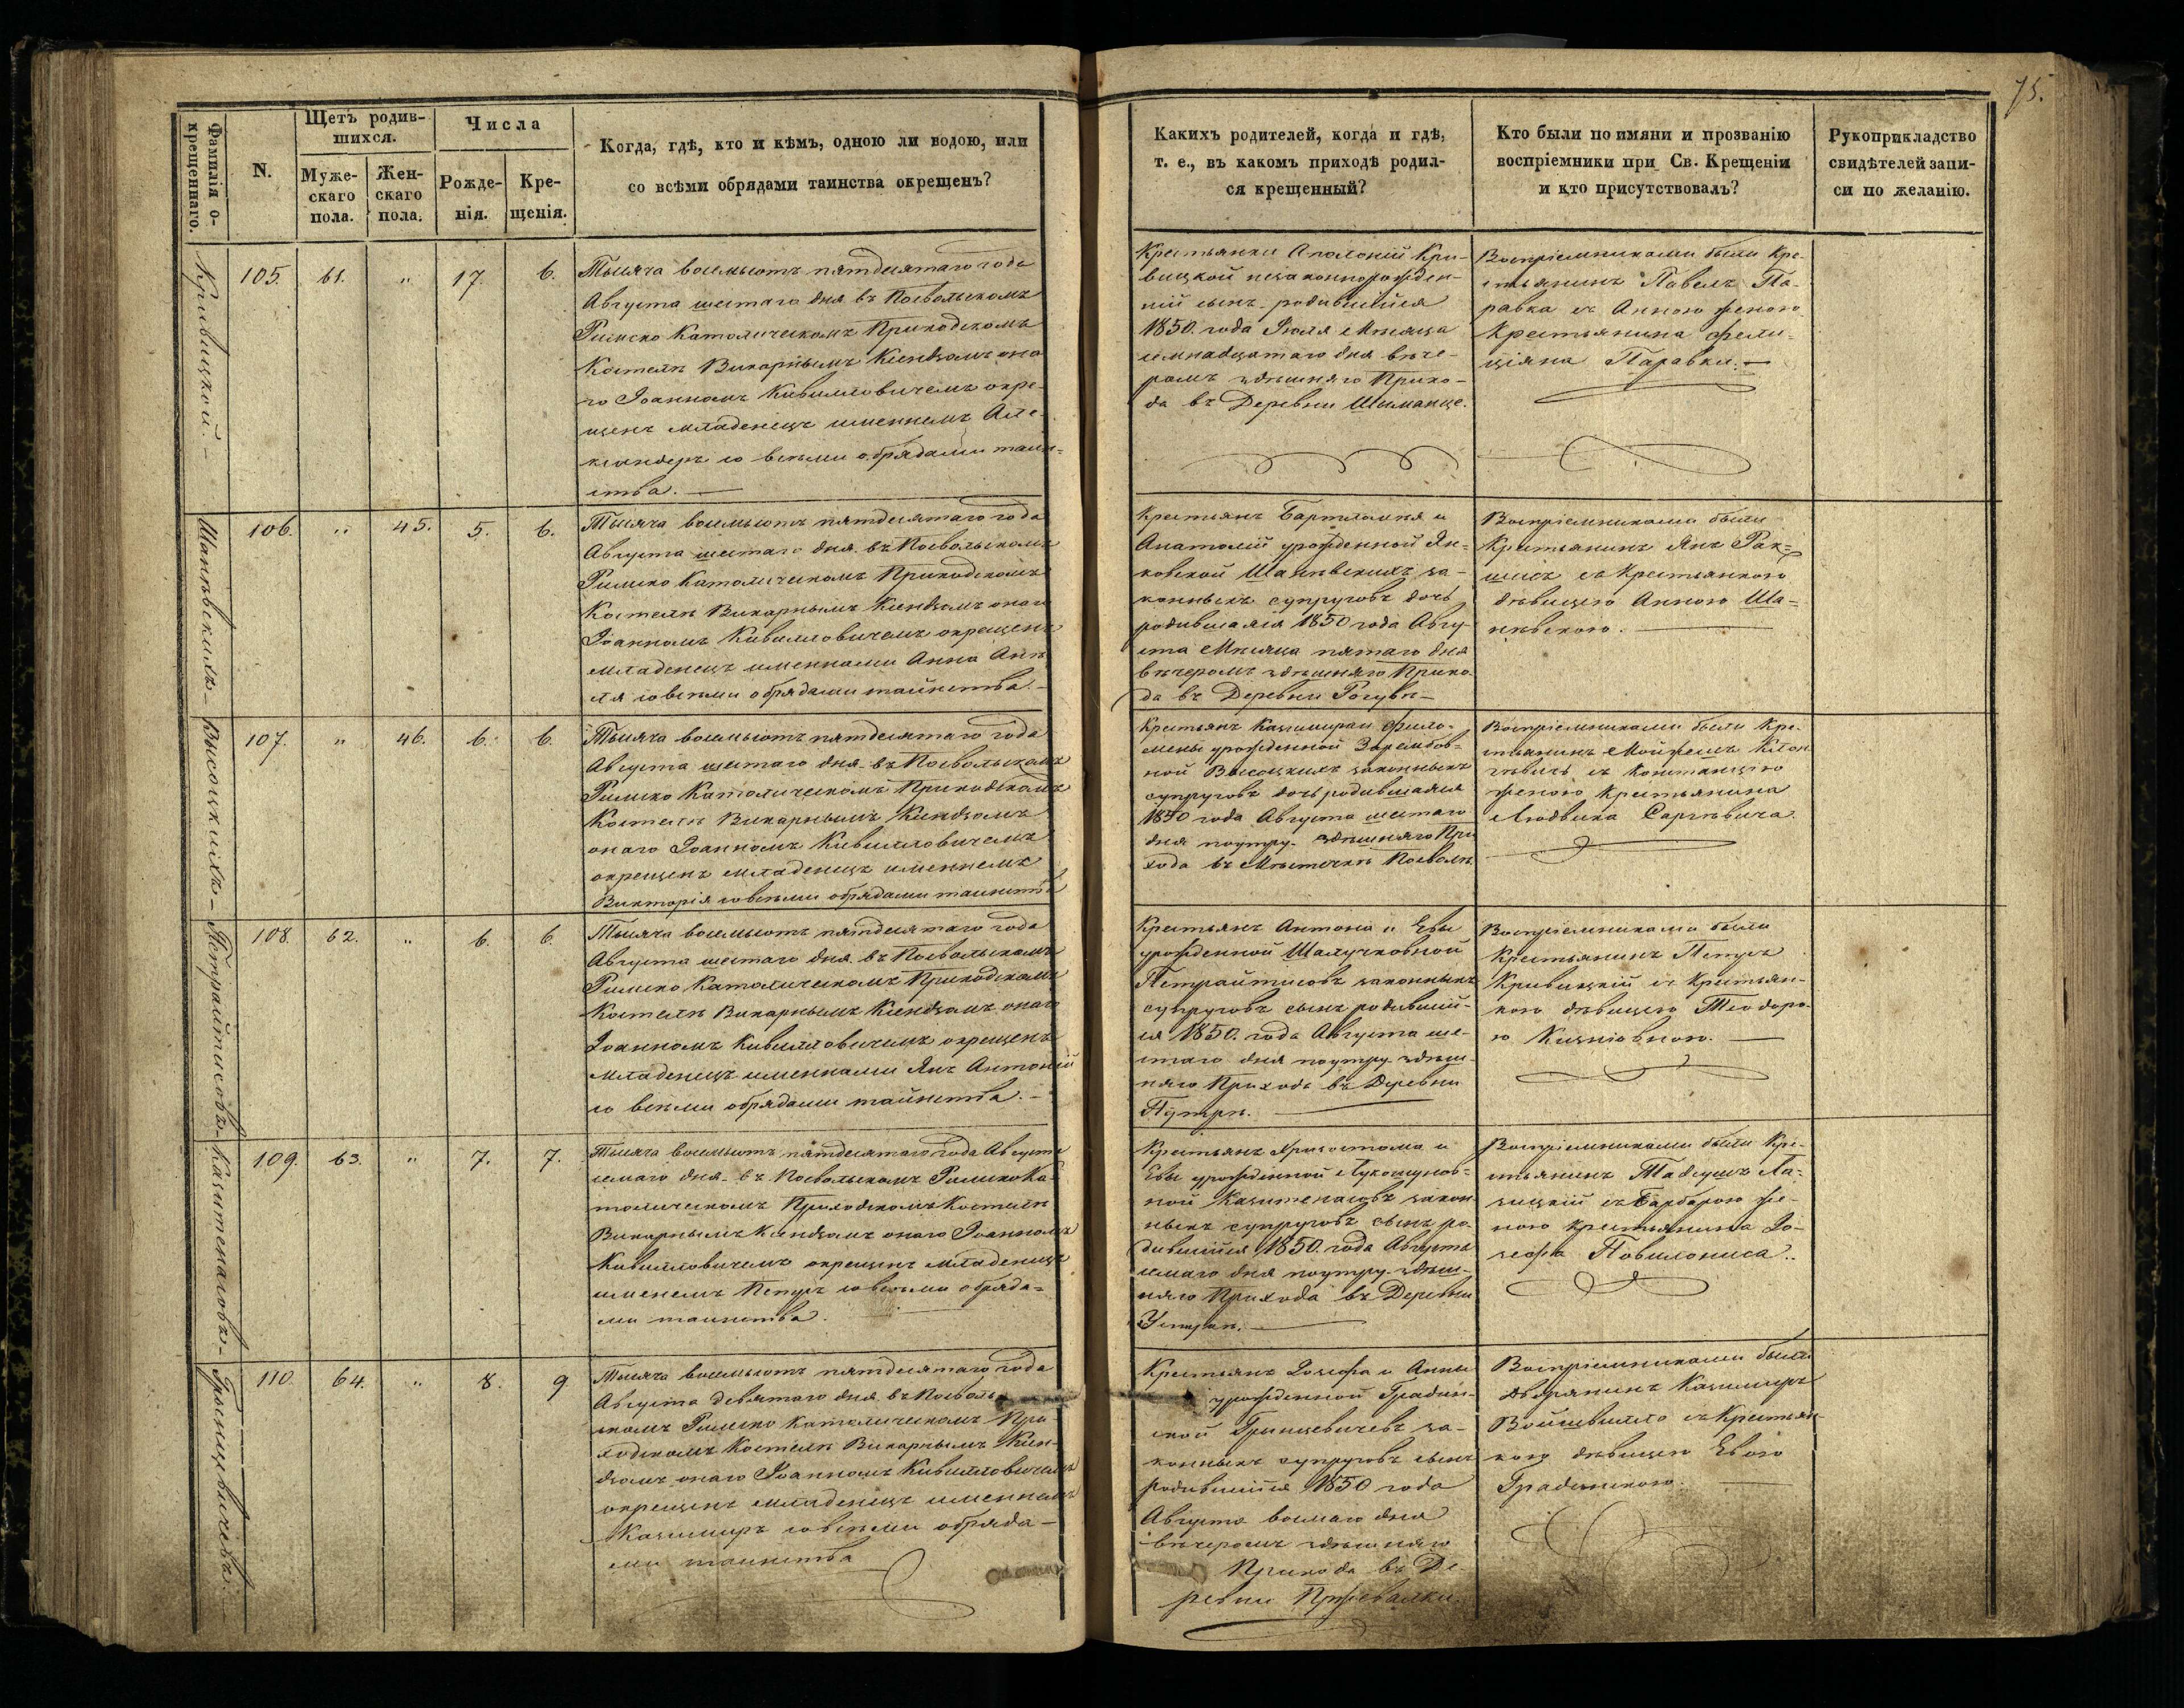 75.
Фамилія о-
крещеннаго.
N.
Щетъ родив-
шихся.
Муже-
скаго
пола.
Жен-
скаго
пола.
Числа
Рожде-
нія.
Кре-
щенія.
Когда, гдѣ, кто и кѣмъ, одною ли водою, или
со всѣми обрядами таинства окрещенъ?
Какихъ родителей, когда и гдѣ,
т. е., въ какомъ приходѣ родил-
ся крещенный?
Кто были по имяни и прозванію
воспріемники при Св. Крещеніи
и кто присутствовалъ?
Рукоприкладство
свидѣтелей запи-
си по желанію.
Кривицкой.
105. 61. " 17. 6.
Тысяча восемьсотъ пятдесятаго года
Августа шестаго дня въ Посвольскомъ
Римско Католическомъ Приходскомъ
Костелѣ Викарнымъ Ксендзомъ она
го Іоанномъ Кибилловичемъ окре-
щенъ младенецъ именнемъ Але-
ксандеръ со всѣми обрядами таин-
ства.
Крестьянки Аполоніи Кри-
вицкой незаконнорожден-
ній сынъ родившійся
1850. года Іюля Мѣсяца
семнадцатаго дня вече-
ромъ здѣшняго Прихо-
да въ Деревни Шиманце.
Воспріемниками были Кре-
стьянинъ Павелъ Па-
равка съ Анною женою
Крестьянина Фели-
ціяна Паравки.
106. " 45. 5. 6.
Тысяча восемьсотъ пятдесятаго года
Августа шестаго дня въ Посвольскомъ
Римско Католическомъ Приходскомъ
Костелѣ Викарнымъ Ксендзомъ онаго
Іоанномъ Кибилловичемъ окрещенъ
младенецъ именнами Анна Анѣ
ля совсѣми обрядами тайнства.
Крестьянъ Бартломѣя и
урожденной Ян-
ковской за-
конныхъ супруговъ дочь
родившаяся 1850 года Авгу-
ста Мѣсяца пятаго дня
вѣчеромъ здѣшняго Прихо-
да въ Деревни
Воспріемниками были
Крестьянинъ Янъ Рак-
шисъ съ Крестьянкою
дѣвицею Анною Ша-
нѣвскою.
Высоцкихъ
107. " 46. 6. 6.
Тысяча восемьсотъ пятдесятаго года
Августа шестаго дня въ Посвольскомъ
Римско Католическомъ Приходскомъ
Костелѣ Викарнымъ Ксендзомъ
онаго Іоанномъ Кибилловичемъ
окрещенъ младенецъ именнемъ
Викторія совсѣми обрядами таинства
Крестьянъ Казимира и Фило-
мены урожденной Зарембов-
ной Высоцкихъ законныхъ
супруговъ дочь родившаяся
1850 года Августа шестаго
дня поутру здѣшняго При
хода въ Мѣстечкѣ Посволѣ
Воспріемниками были Кре-
стьянинъ съ Констанціею
женою Крестьянина
Людвика
108. 62. " 6. 6.
Тысяча восемьсотъ пятдесятаго года
Августа шестаго дня въ Посвольскомъ
Римско Католическомъ Приходскомъ
Костелѣ Викарнымъ Ксендзомъ онаго
Іоанномъ Кибилловичемъ окрещенъ
младенецъ именнами Янъ Антоній
со всѣми обрядами тайнства.
Крестьянъ Антона и Евы
урожденной
Петрайтисовъ законныхъ
супруговъ сынъ родившій-
ся 1850. года Августа ше-
стаго дня поутру здѣш-
няго Прихода въ Деревни
Воспріемниками были
Крестьянинъ Петръ
Кривицкій съ Крестьян-
кою дѣвицею Теодоро-
ю
109. 63. " 7. 7.
Тысяча восемьсотъ пятдесятаго года Августа
семаго дня въ Посвольскомъ Римско Ка-
толическомъ Приходскомъ Костелѣ
Викарнымъ Ксендзомъ онаго Іоанномъ
Кибилловичемъ окрещенъ младенецъ
именемъ Петръ совсѣми обряда-
ми таинства.
Крестьянъ Хризостома и
Евы урожденной
ной закон-
ныхъ супруговъ сынъ ро-
дившійся 1850. года Августа
семаго дня поутру здѣш-
няго Прихода въ Деревни
Воспріемниками были Кре-
стьянинъ Тадеушъ Ла-
зицкій съ Барбарою же-
ною крестьянина Іо-
зефа Повилониса.
Грынцевичевъ.
110. 64. " 8. 9
Тысяча восемьсотъ пятдесятаго года
Августа девятаго дня въ Посволь-
скомъ Римско Католическомъ При-
ходскомъ Костелѣ Викарнымъ Ксен-
дзомъ онаго Іоанномъ Кибилловичемъ
окрещенъ младенецъ именнемъ
Казимиръ совсѣми обряда-
ми таинства
Крестьянъ Іозефа и Анны
урожденной Градин-
ской Гринцевичевъ за-
конныхъ супруговъ сынъ
родившійся 1850 года
Августа восмаго дня
вѣчеромъ здѣшняго
Прихода въ Де-
ревни
Воспріемниками были
Дворянинъ Казимиръ
Войшвилло съ Крестьян-
кою дѣвицею Евою
Градинскою.